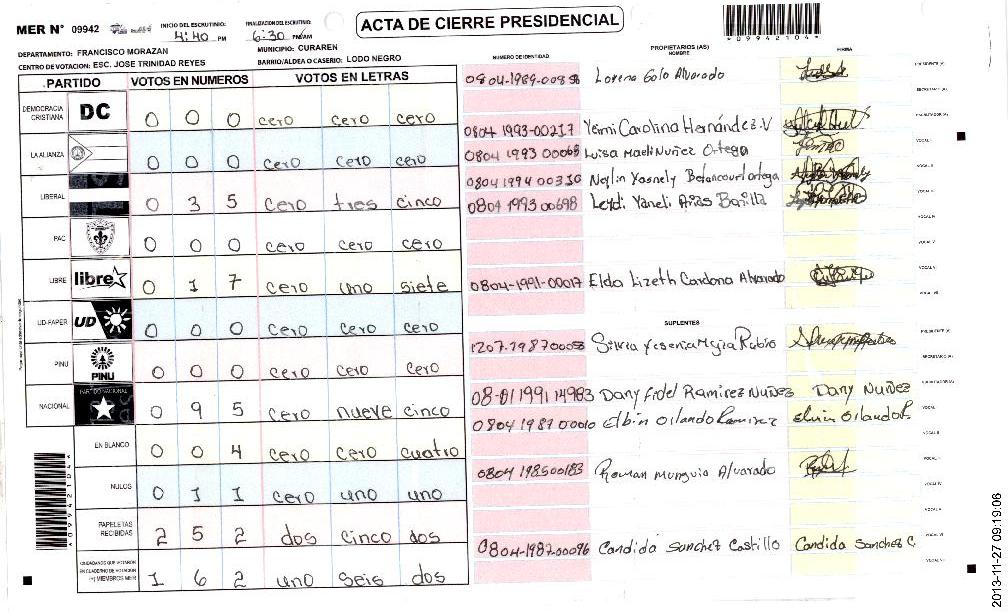 ACTA DE CIERRE PRESIDENCIAL
MER N° 09942
INICIO DEL ESCRUTINIO: 4:40 PM
FINALIZACION DEL ESCRUTINIO: 6:30 PM/AM
*09942104*
DEPARTAMENTO: FRANCISCO MORAZAN
MUNICIPIO: CURAREN
CENTRO DE VOTACION: ESC. JOSE TRINIDAD REYES
BARRIO/ALDEA O CASERIO: LODO NEGRO
PARTIDO VOTOS EN NUMEROS VOTOS EN LETRAS
DEMOCRACIA CRISTIANA DC 0 0 0 cero cero cero
LA ALIANZA 0 0 0 cero cero cero
LIBERAL 0 3 5 cero tres cinco
PAC 0 0 0 cero cero cero
LIBRE libre 0 1 7 cero uno siete
UD-FAPER UD 0 0 0 cero cero cero
PINU PINU 0 0 0 cero cero cero
NACIONAL PARTIDO NACIONAL 0 9 5 cero nueve cinco
EN BLANCO 0 0 4 cero cero cuatro
NULOS 0 1 1 cero uno uno
PAPELETAS RECIBIDAS 2 5 2 dos cinco dos
CIUDADANOS QUE VOTARON EN CUADERNO DE VOTACION (+) MIEMBROS MER 1 6 2 uno seis dos
*09942104*
NUMERO DE IDENTIDAD PROPIETARIOS (AS) NOMBRE FIRMA
Lorena Alvarado PRESIDENTE (A)
SECRETARIO (A)
0804 1993-00217 Yeimi Carolina Hernández.V ESCRUTADOR (A)
0804 1993 Luisa Nuñez Ortega VOCAL I
0804 1994 00310 Yosnely Betancourt ortega VOCAL II
0804 1993 00698 Yaneli VOCAL III
VOCAL IV
VOCAL V
0804-1991-00017 Elda Lizeth Cardona Alvarado VOCAL VI
VOCAL VII
SUPLENTES
Silvia Yesenia Rubio PRESIDENTE (A)
SECRETARIO (A)
08-01 1991 14983 Dany Fidel Ramirez Nuñez Dany Nuñez ESCRUTADOR (A)
0804 1987 00010 Elbin Orlando Ramirez Elvin Orlando R. VOCAL I
VOCAL II
0804 198500183 Roman Munguia Alvarado VOCAL III
VOCAL IV
VOCAL V
0804-1987-00096 Candida Sanchez Castillo Candida Sanchez C. VOCAL VI
VOCAL VII
2013-11-27 09:19:06